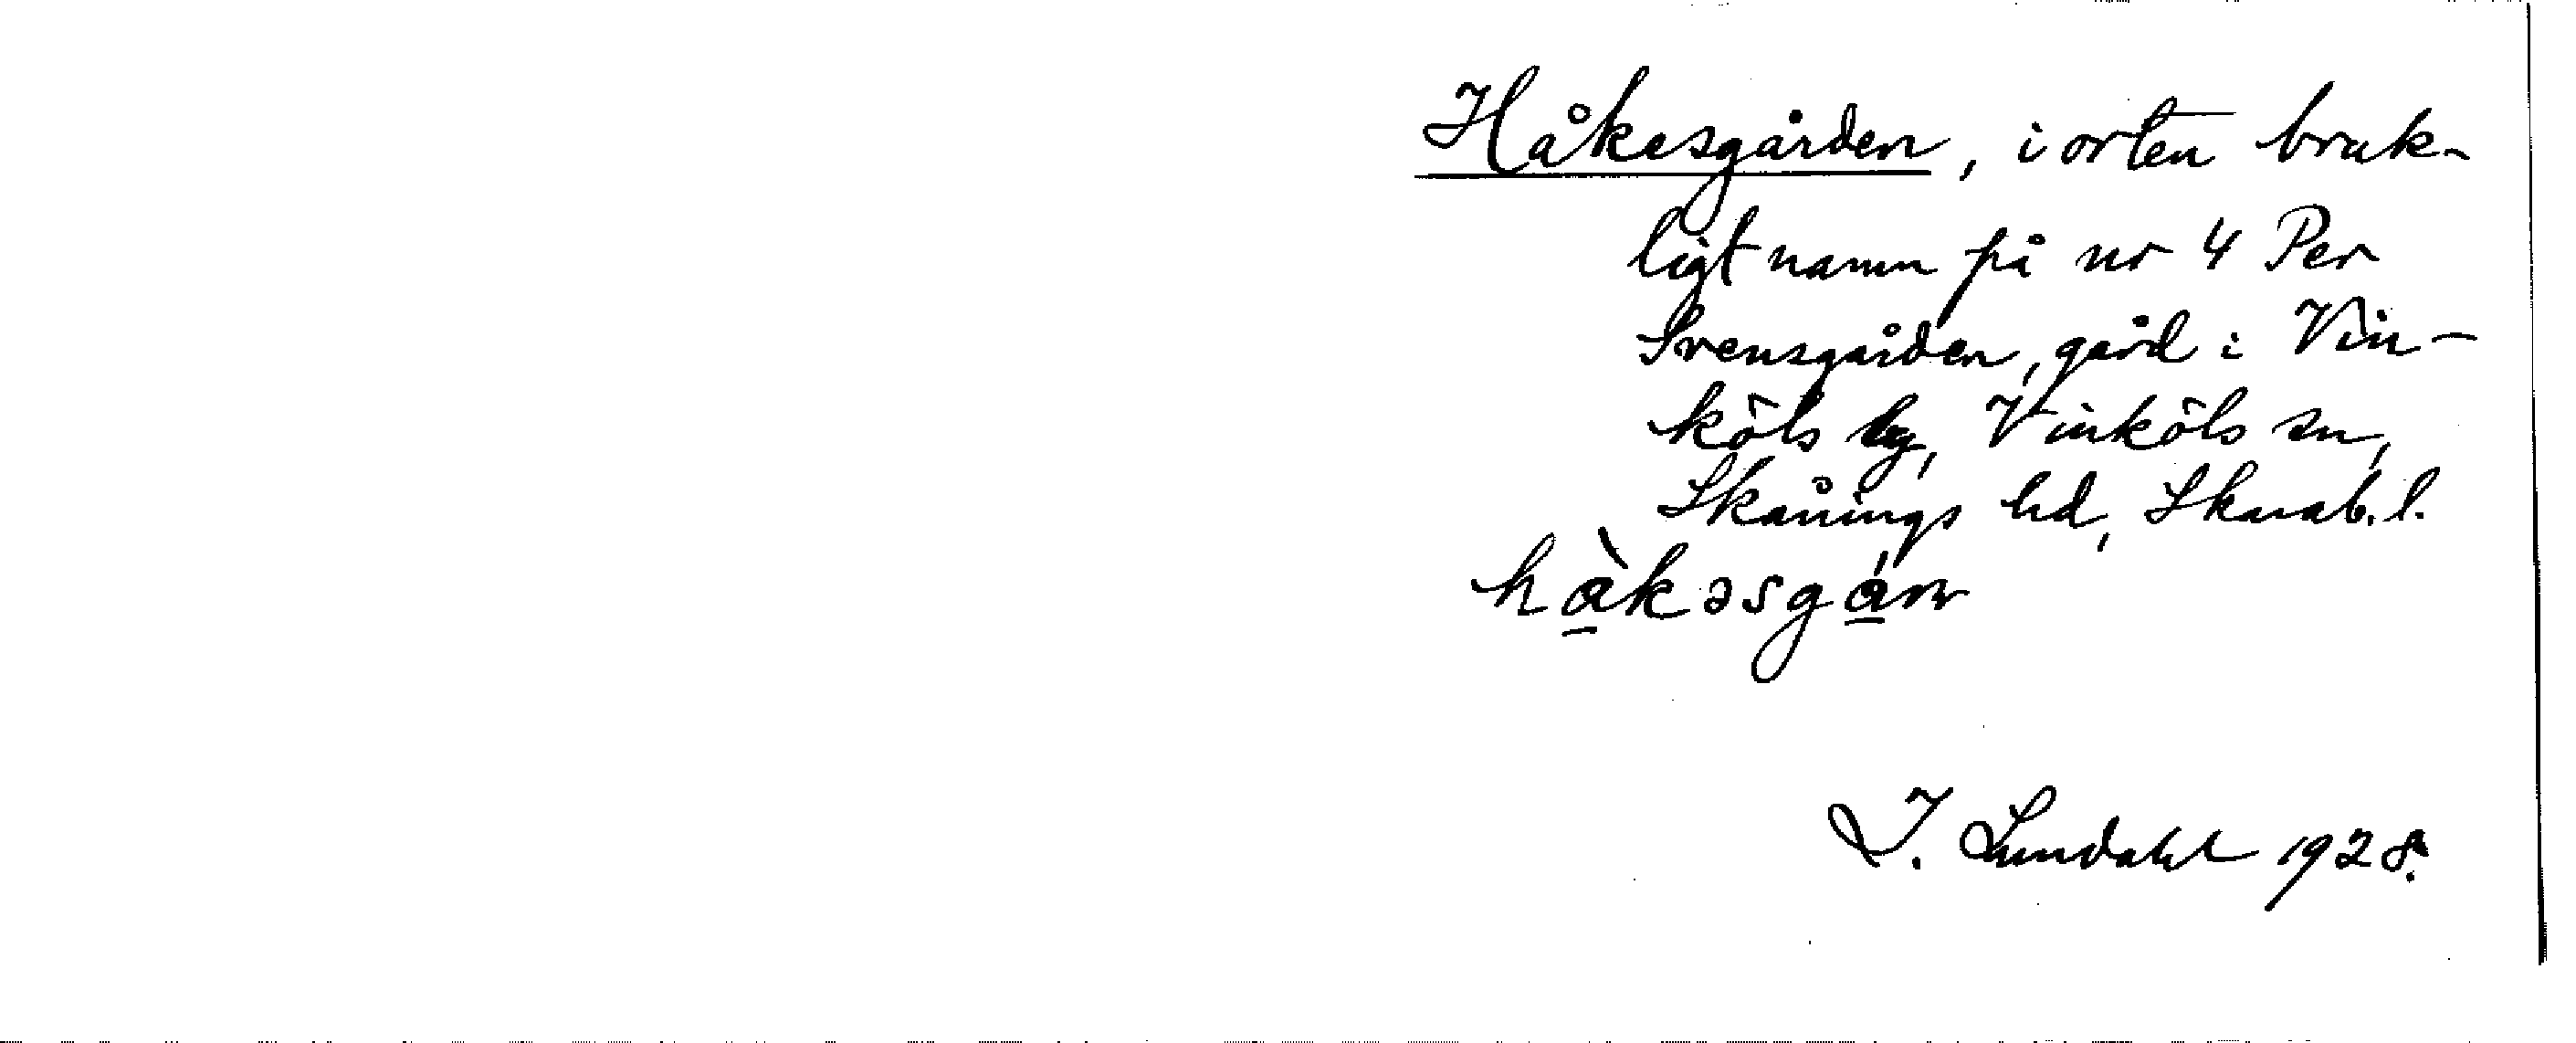 Håkesgården, i orten bruk-
ligt namn på nr 4 Per
Svensgården, gård i Vin-
köls by, Vinköls sn,
Skånings hd, Skarab. l.
hà̱kəsgá̱rn
I. Lundahl 1928.